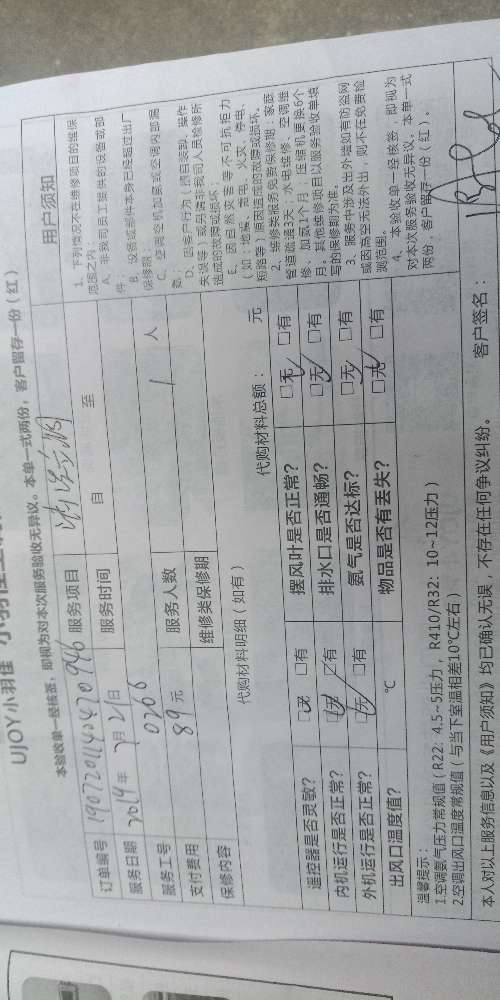 UJOY小羽佳
本验收单一经核签，即视为对本次服务验收无异议。本单一式两份，客户留存一份（红）
订单编号 190720114042 0946 服务项目
服务日期 2019年 7月21日 服务时间 自 至
服务工号 0266 服务人数 1 人
支付费用 89元 维修类保修期
保修内容
代购材料明细（如有） 代购材料总额： 元
遥控器是否灵敏？ □无 □有 摆风叶是否正常？ □无 □有
内机运行是否正常？ □无 □有 排水口是否通畅？ □无 □有
外机运行是否正常？ □无 □有 氨气是否达标？ □无 □有
出风口温度值？ ℃ 物品是否有丢失？ □无 □有
温馨提示：
1.空调氨气压力常规值（R22: 4.5~5压力，R410/R32: 10~12压力）
2.空调出风口温度常规值（与当下室温相差10℃左右）
本人对以上服务信息以及《用户须知》均已确认无误，不存在任何争议纠纷。 客户签名：
用户须知
1、下列情况不在维修项目的维保
范围之内
A、非我司员工提供的设备或部
件
B、设备或部件本身已经超过出厂
保修期
C、空调空机加氨或空调内部漏
氨；
D、因客户行为（擅自装卸、操作
失误等）或另请非我司人员检修所
造成的故障或损坏；
E、因自然灾害等不可抗拒力
（如：地震、雷电、火灾、停电、
短路等）原因造成的故障或损坏。
2、维修类服务免费保修期：家庭
管道疏通3天；水电维修、空调维
修、加氨1个月；压缩机更换6个
月。其他维修项目以服务验收单填
写的保修期为准。
3、服务中涉及出外墙如有防盗网
或因高空无法外出，则不在免费检
测范围。
4、本验收单一经核签，即视为
对本次服务验收无异议，本单一式
两份，客户留存一份（红）。